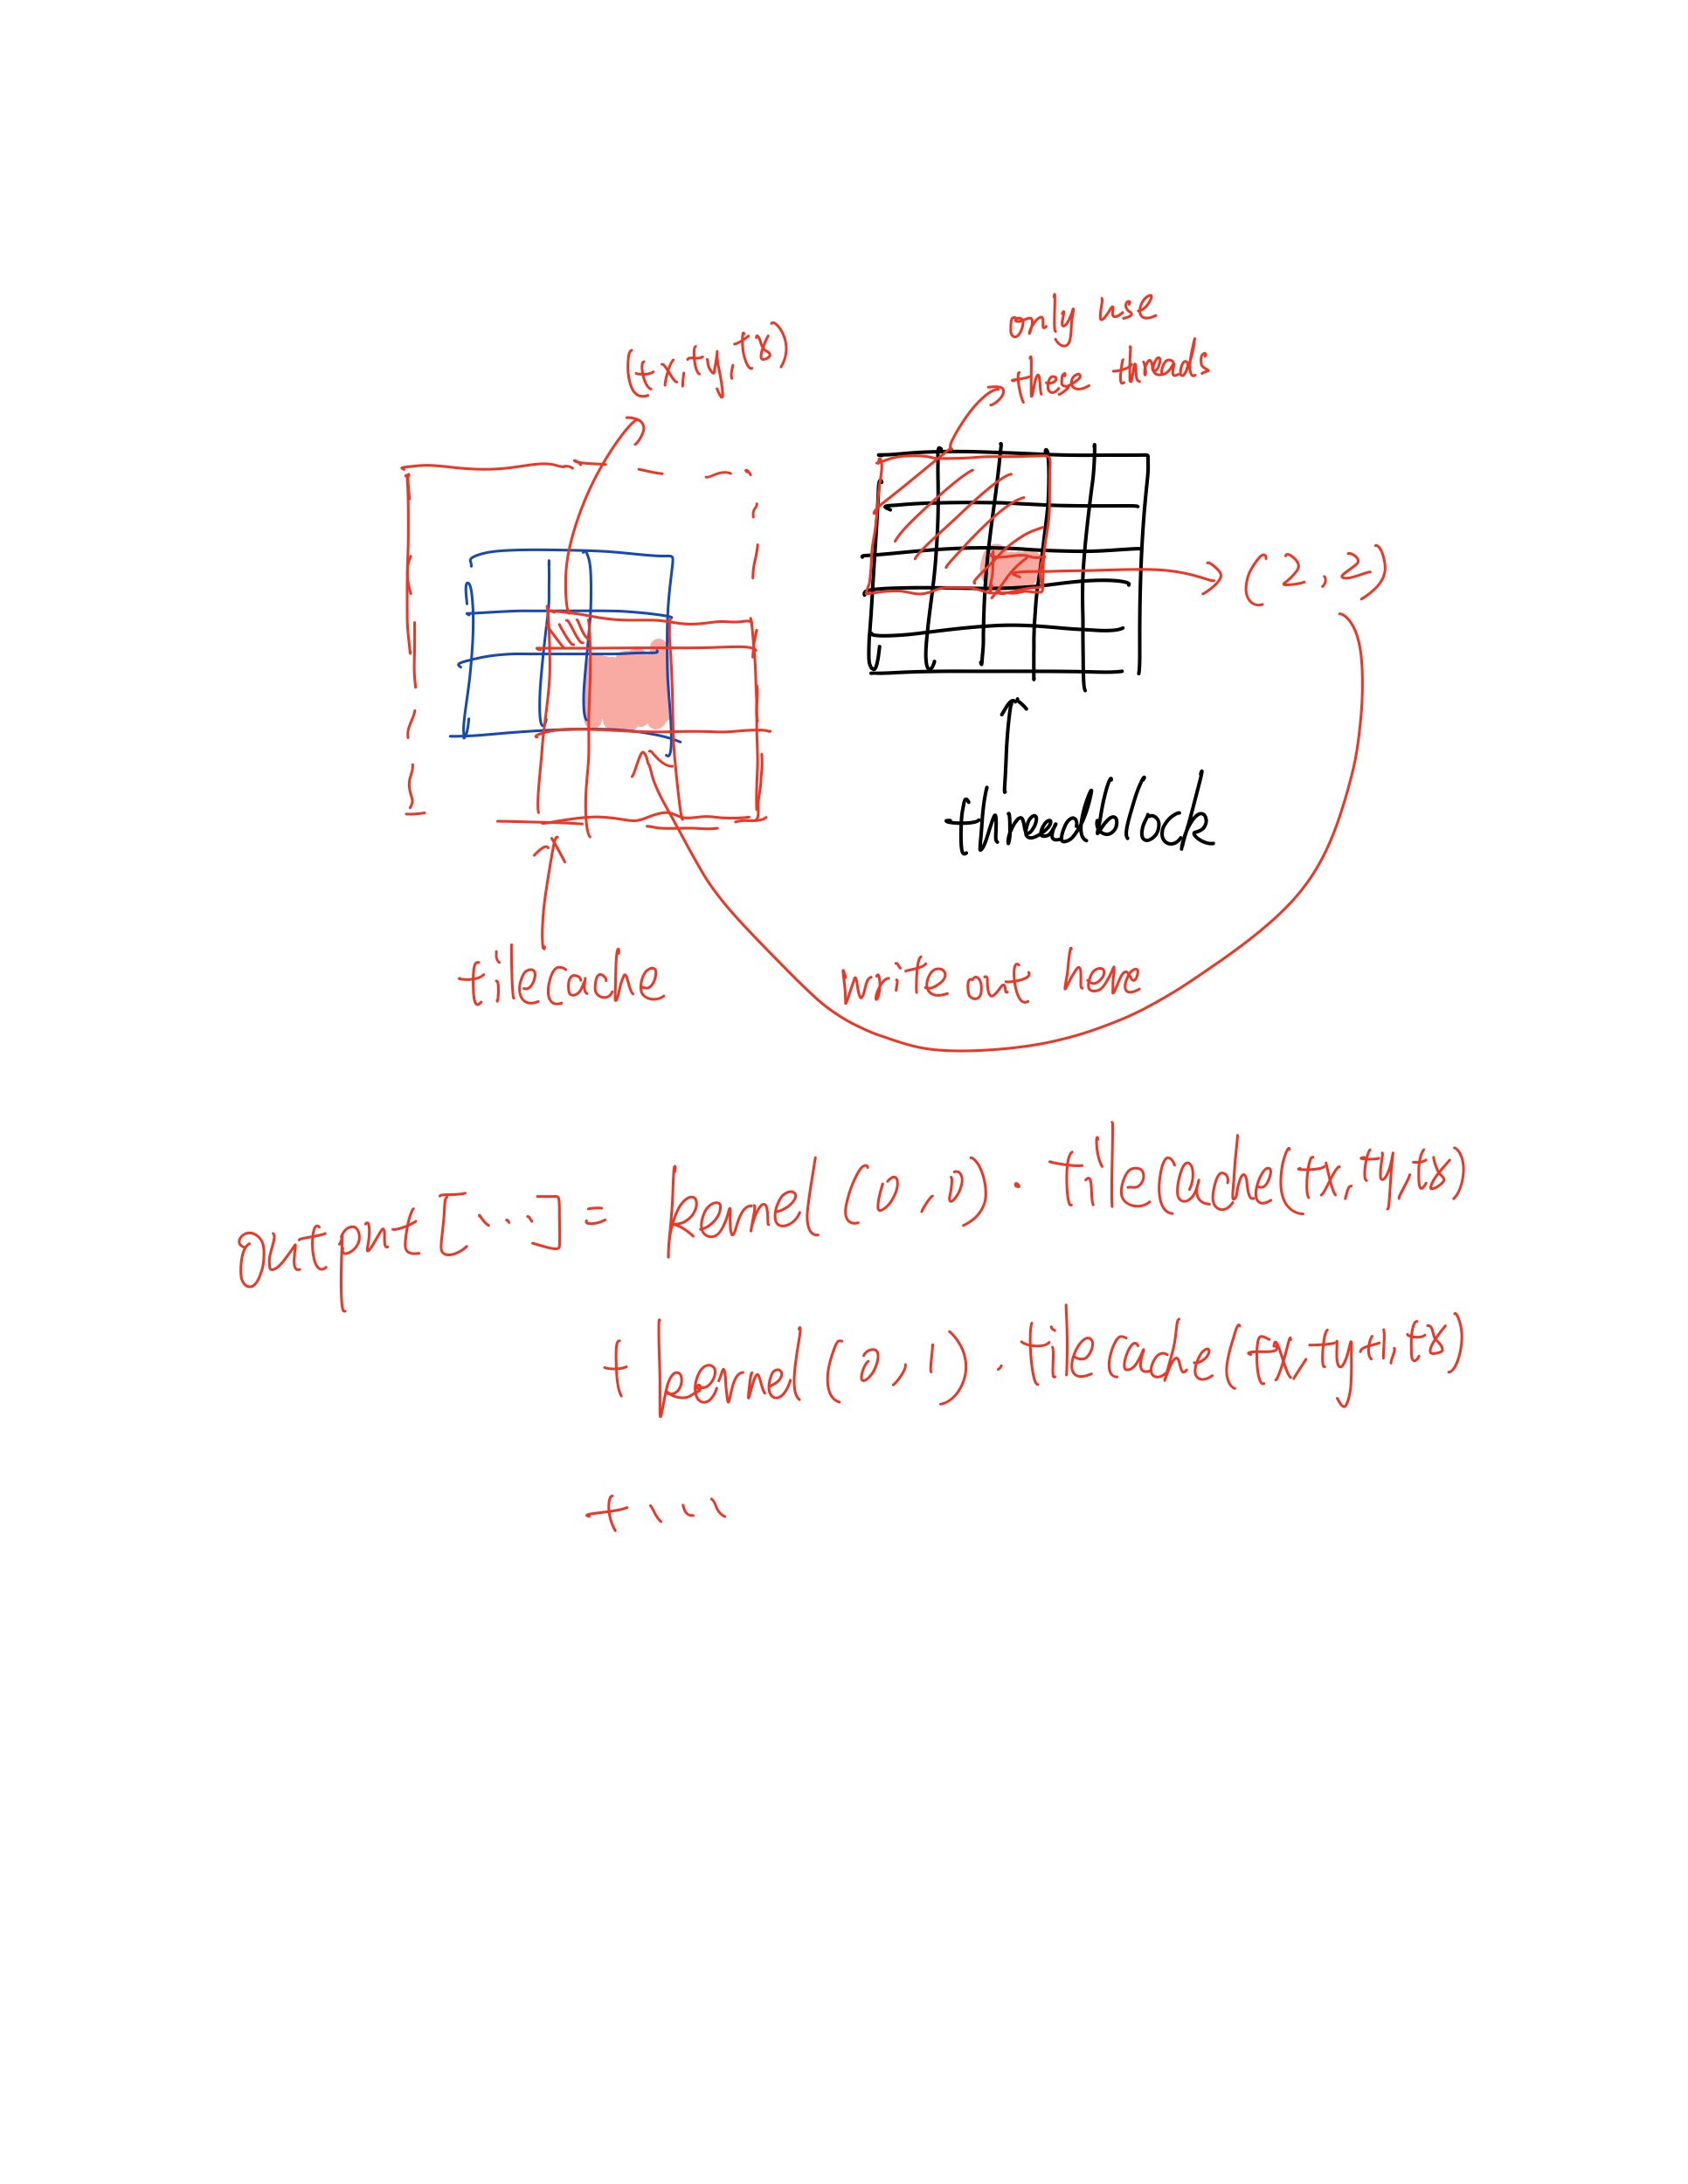 only use
these threads
(tx,ty,tz)
(2,2)
threadblock
tilecache
write out here
output[...] = kernel(0,0) · tilecache(tx,ty,tz)
+ kernel(0,1) · tilecache(tx,ty+1,tz)
+ ...